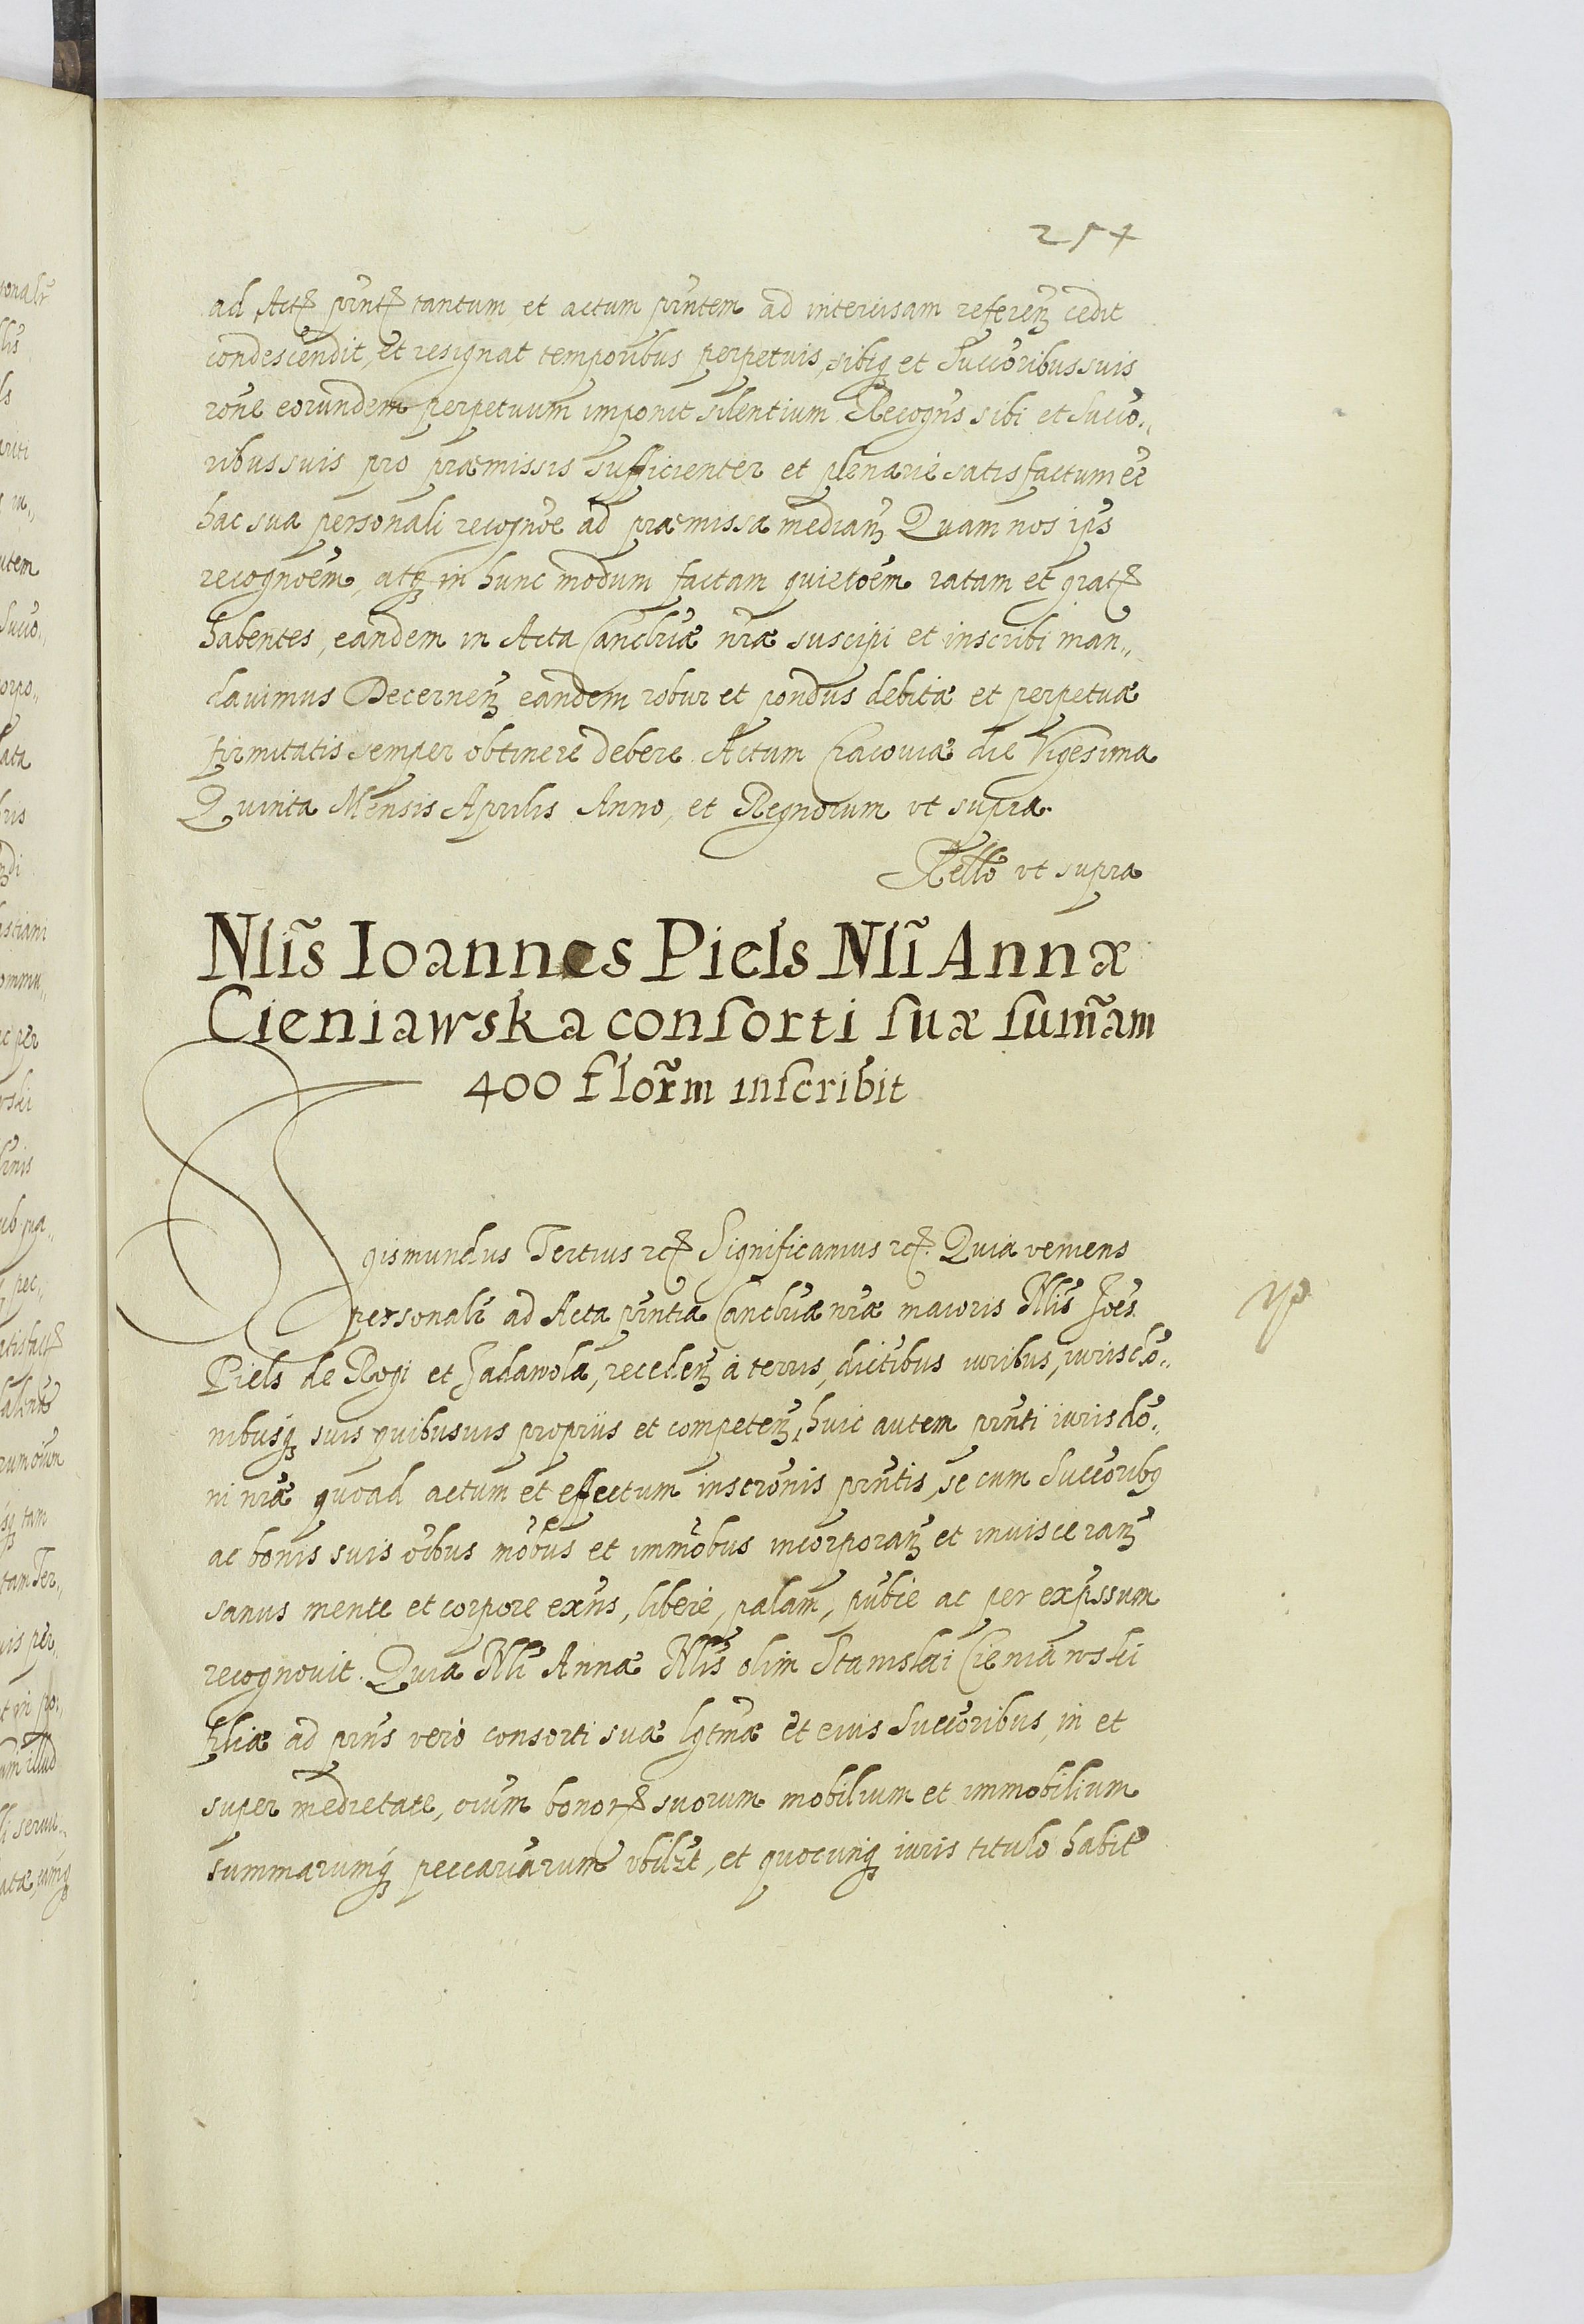 254
ad Acta prntia tantum et actum prntem ad interuisam referenz cedit
condescendit, et resignat temporibus perpetuis, sibiq et Succoribus suis
rone eorundem perpetuum imponit silentium Recogns sibi et Succo„
ribus suis pro præmissis sufficienter et plenarie satisfactum ee
hac sua personali recognoe ad præmissa medianz Quam nos ips
recognoem, atq in hunc modum factam quietoem ratam et grat
habentes, eandem in Acta Cancllriæ nræ suscipi et inscribi man„
dauimus Decernenz eandem robur et pondus debitæ et perpetuæ
firmitatis semper obtinere debere. Actum Cracouiæ die Vigesima
Quinta Mensis Aprilis Anno, et Regnorum vt supra.
Rello vt supra
Nlis̃ Ioannes Piels Nlĩ Annæ
Cieniawska conſorti ſuæ ſum̃am
400 flor̃m inſcribit
gismundus Tertius etc Significamus etc. Quia veniens
personalr ad Acta prntia Cancllriæ nræ maioris Nlis Joes
Piels de Rogi et Jadawola, recedenz a terris, dictibus iuribus, iurisdo„
nibusq suis quibusuis propriis et competenz, huic autem prnti iurisdo„
ni nræ quoad actum et effectum inscronis prntis, se cum Succoribq
ac bonis suis oibus mobus et immobus incorporanz et inuisceranz
sanus mente et corpore exns, libere, palam, publie ac per expssum
recognouit. Quia Nli Annæ Nlis olim Stanislai Cieniawski
filiæ ad prns vero consorti suæ lgtmæ et eius Succoribus, in et
super medietate, oium bonor suorum mobilium et immobilium
summarumq peccariarum vbilzt, et quocunq iuris titulo habit